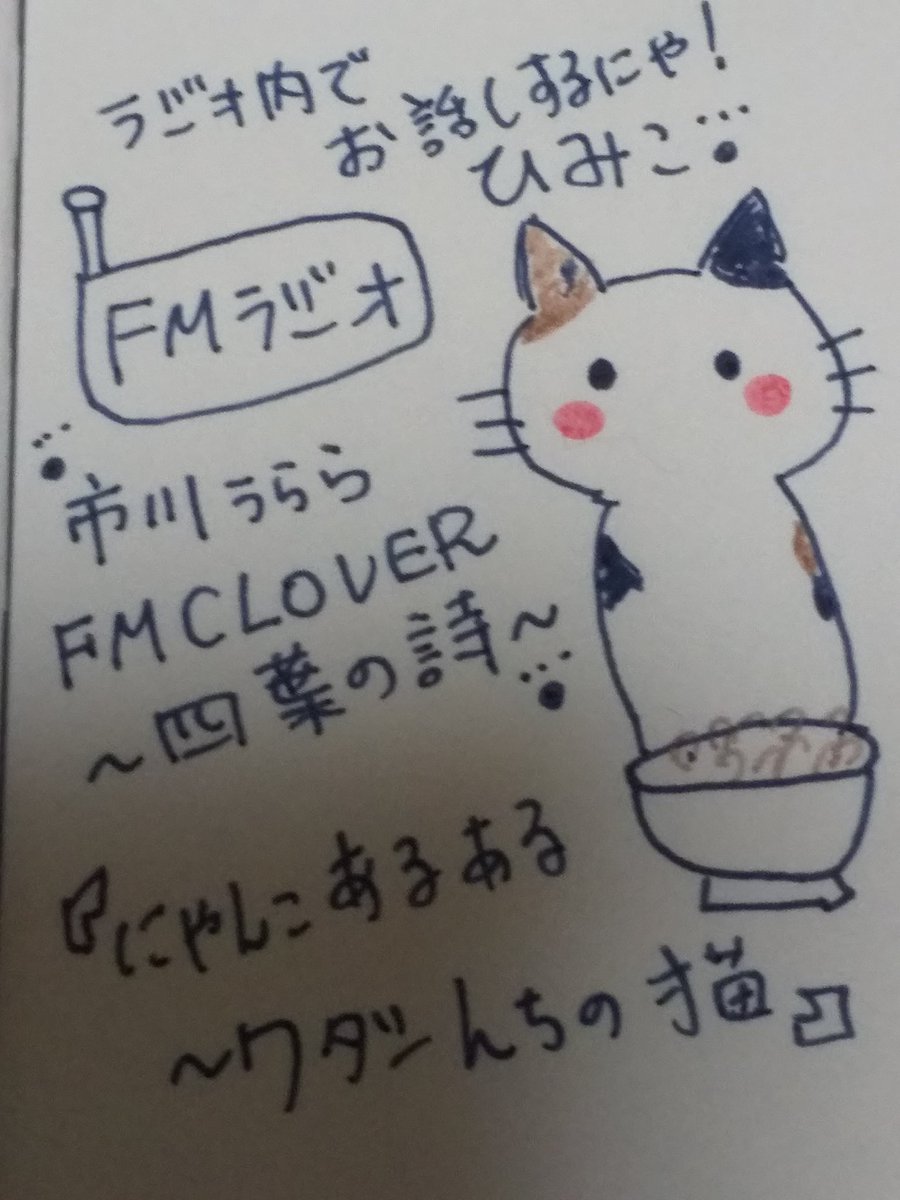 ラジオ内で
お話しするにゃ!
ひみこ…
FMラジオ
…市川うらら
FMCLOVER
~四葉の詩~…
『にゃんこあるある
~ワダシんちの猫』